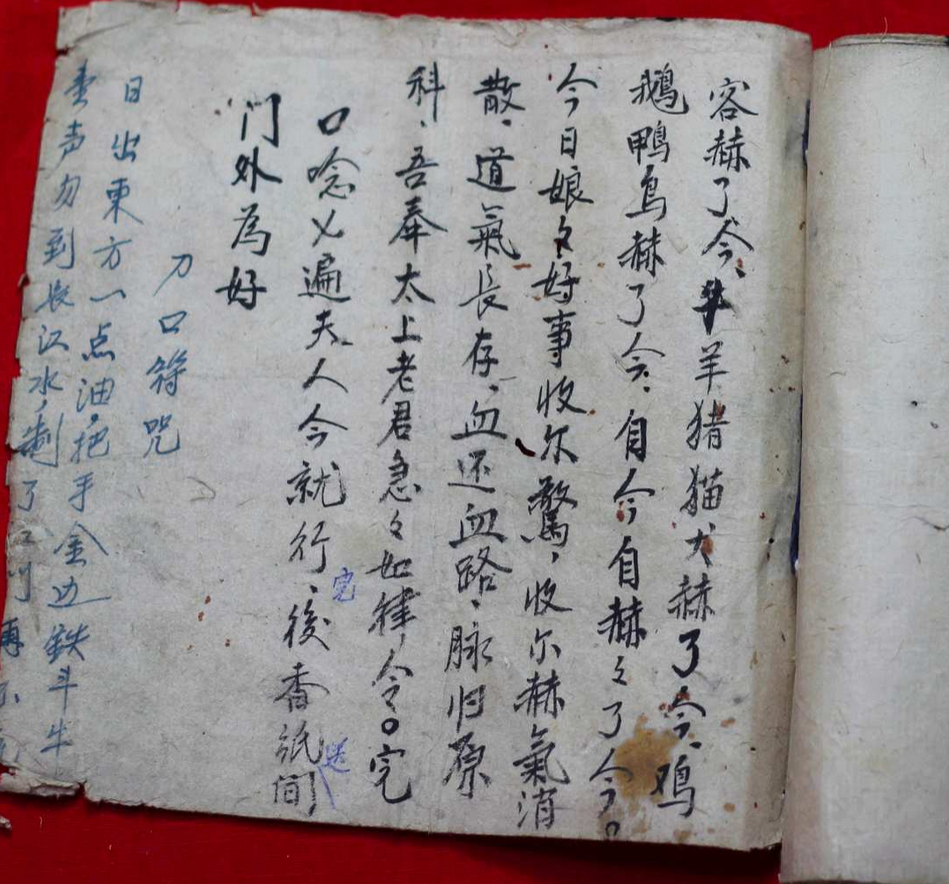 容赫了今、牛羊猪猫犬赫了今、鸡
鹅鸭鸟赫了今、自今自赫々了今。
今日娘々好事收尔驚，收尔赫氣消
散、道氣長存、血还血路、脉归原
科、吾奉太上老君急々如律令。完
口唸乂遍夫人今就行、完後香紙送間
门外為好
刀口符咒
日出東方一点油。把手金边鉄斗牛
声勿到長江水，制了
再